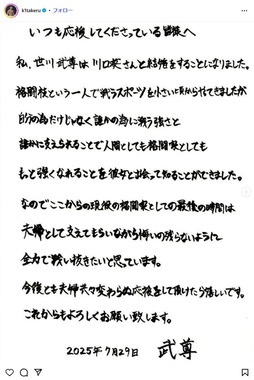 k1takeru フォロー
いつも応援してくださっている皆様へ
私、世川武尊は川口葵さんと結婚をすることになりました。
格闘技という一人で戦うスポーツを小さい頃からやってきましたが
自分の為だけじゃなく誰かの為に戦う強さと
誰かに支えられることで人間としても格闘家としても
もっと強くなれることを彼女と出会って知ることができました。
なのでここからの現役の格闘家としての最後の時間は
夫婦として支えてもらいながら悔いの残らないように
全力で戦い抜きたいと思っています。
今後とも夫婦共々変わらぬ応援をして頂けたら嬉しいです。
これからもよろしくお願い致します。
2025年7月29日 武尊